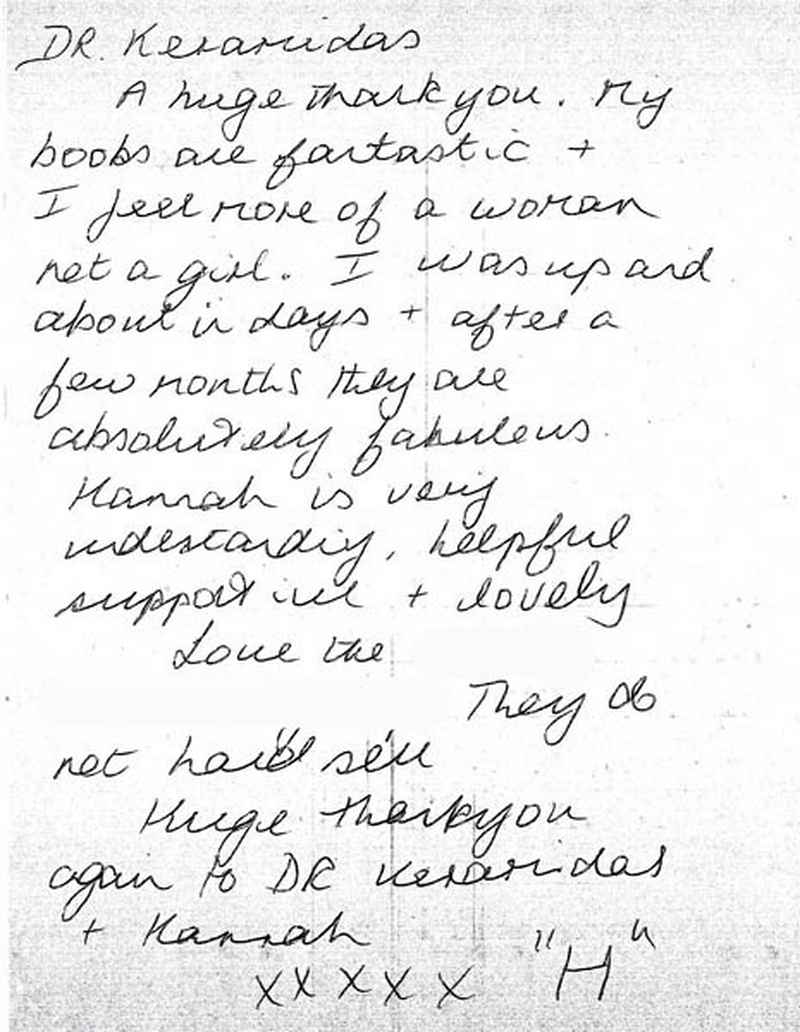 DR. Keramidas
A huge thank you. My
boobs are fantastic +
I feel more of a woman
not a girl. I was up and
about in days + after a
few months they are
absolutely fabulous.
Hannah is very
understanding, helpful
supportive + lovely
Love the
They do
not "hard sell"
Huge thankyou
again to DR Keramidas
+ Hannah
xxxxx "H"